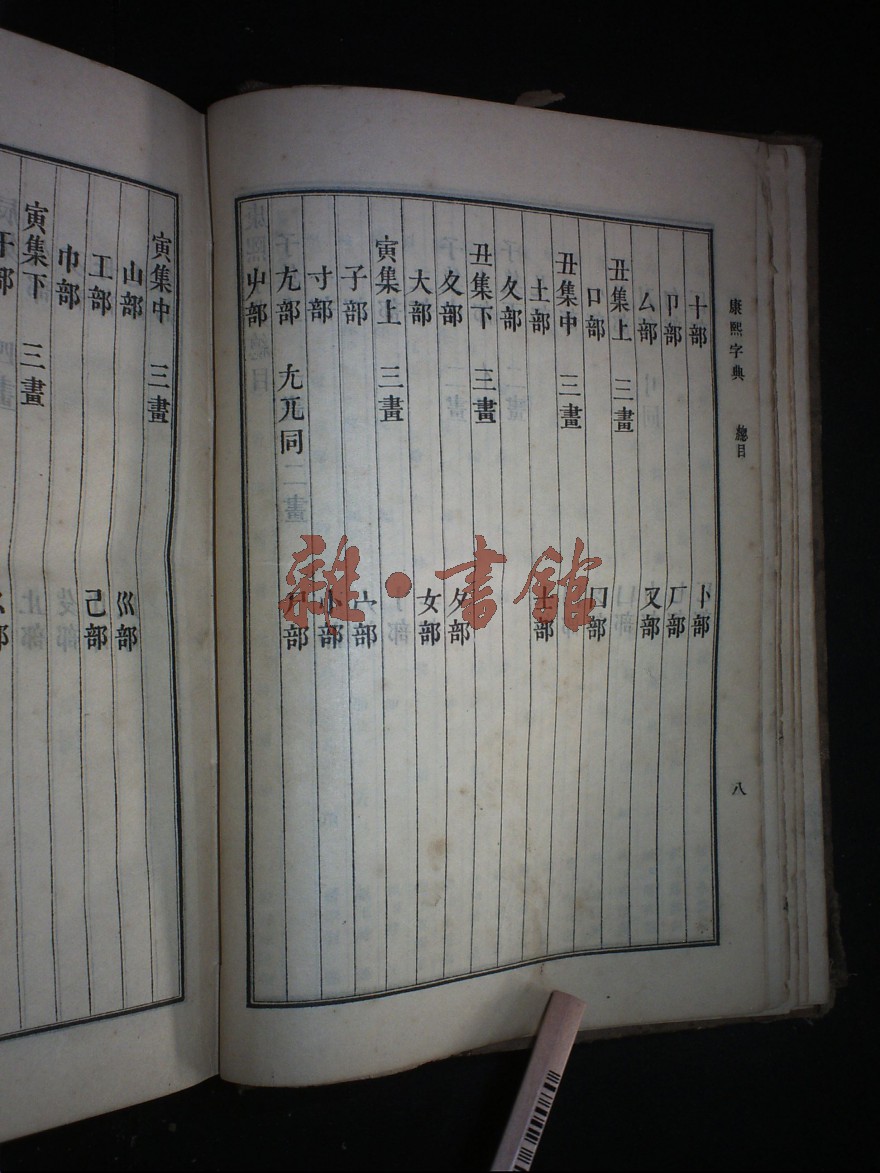 康熙字典 總目 八
十部 卜部
卩部 厂部
厶部 又部
丑集上 三畫
口部 囗部
丑集中 三畫
土部 士部
夂部
丑集下 三畫
夊部 夕部
大部 女部
寅集上 三畫
子部 宀部
寸部 小部
尢部 尣兀同 尸部
屮部
寅集中 三畫
山部 巛部
工部 己部
巾部
寅集下 三畫
干部
雜·書館